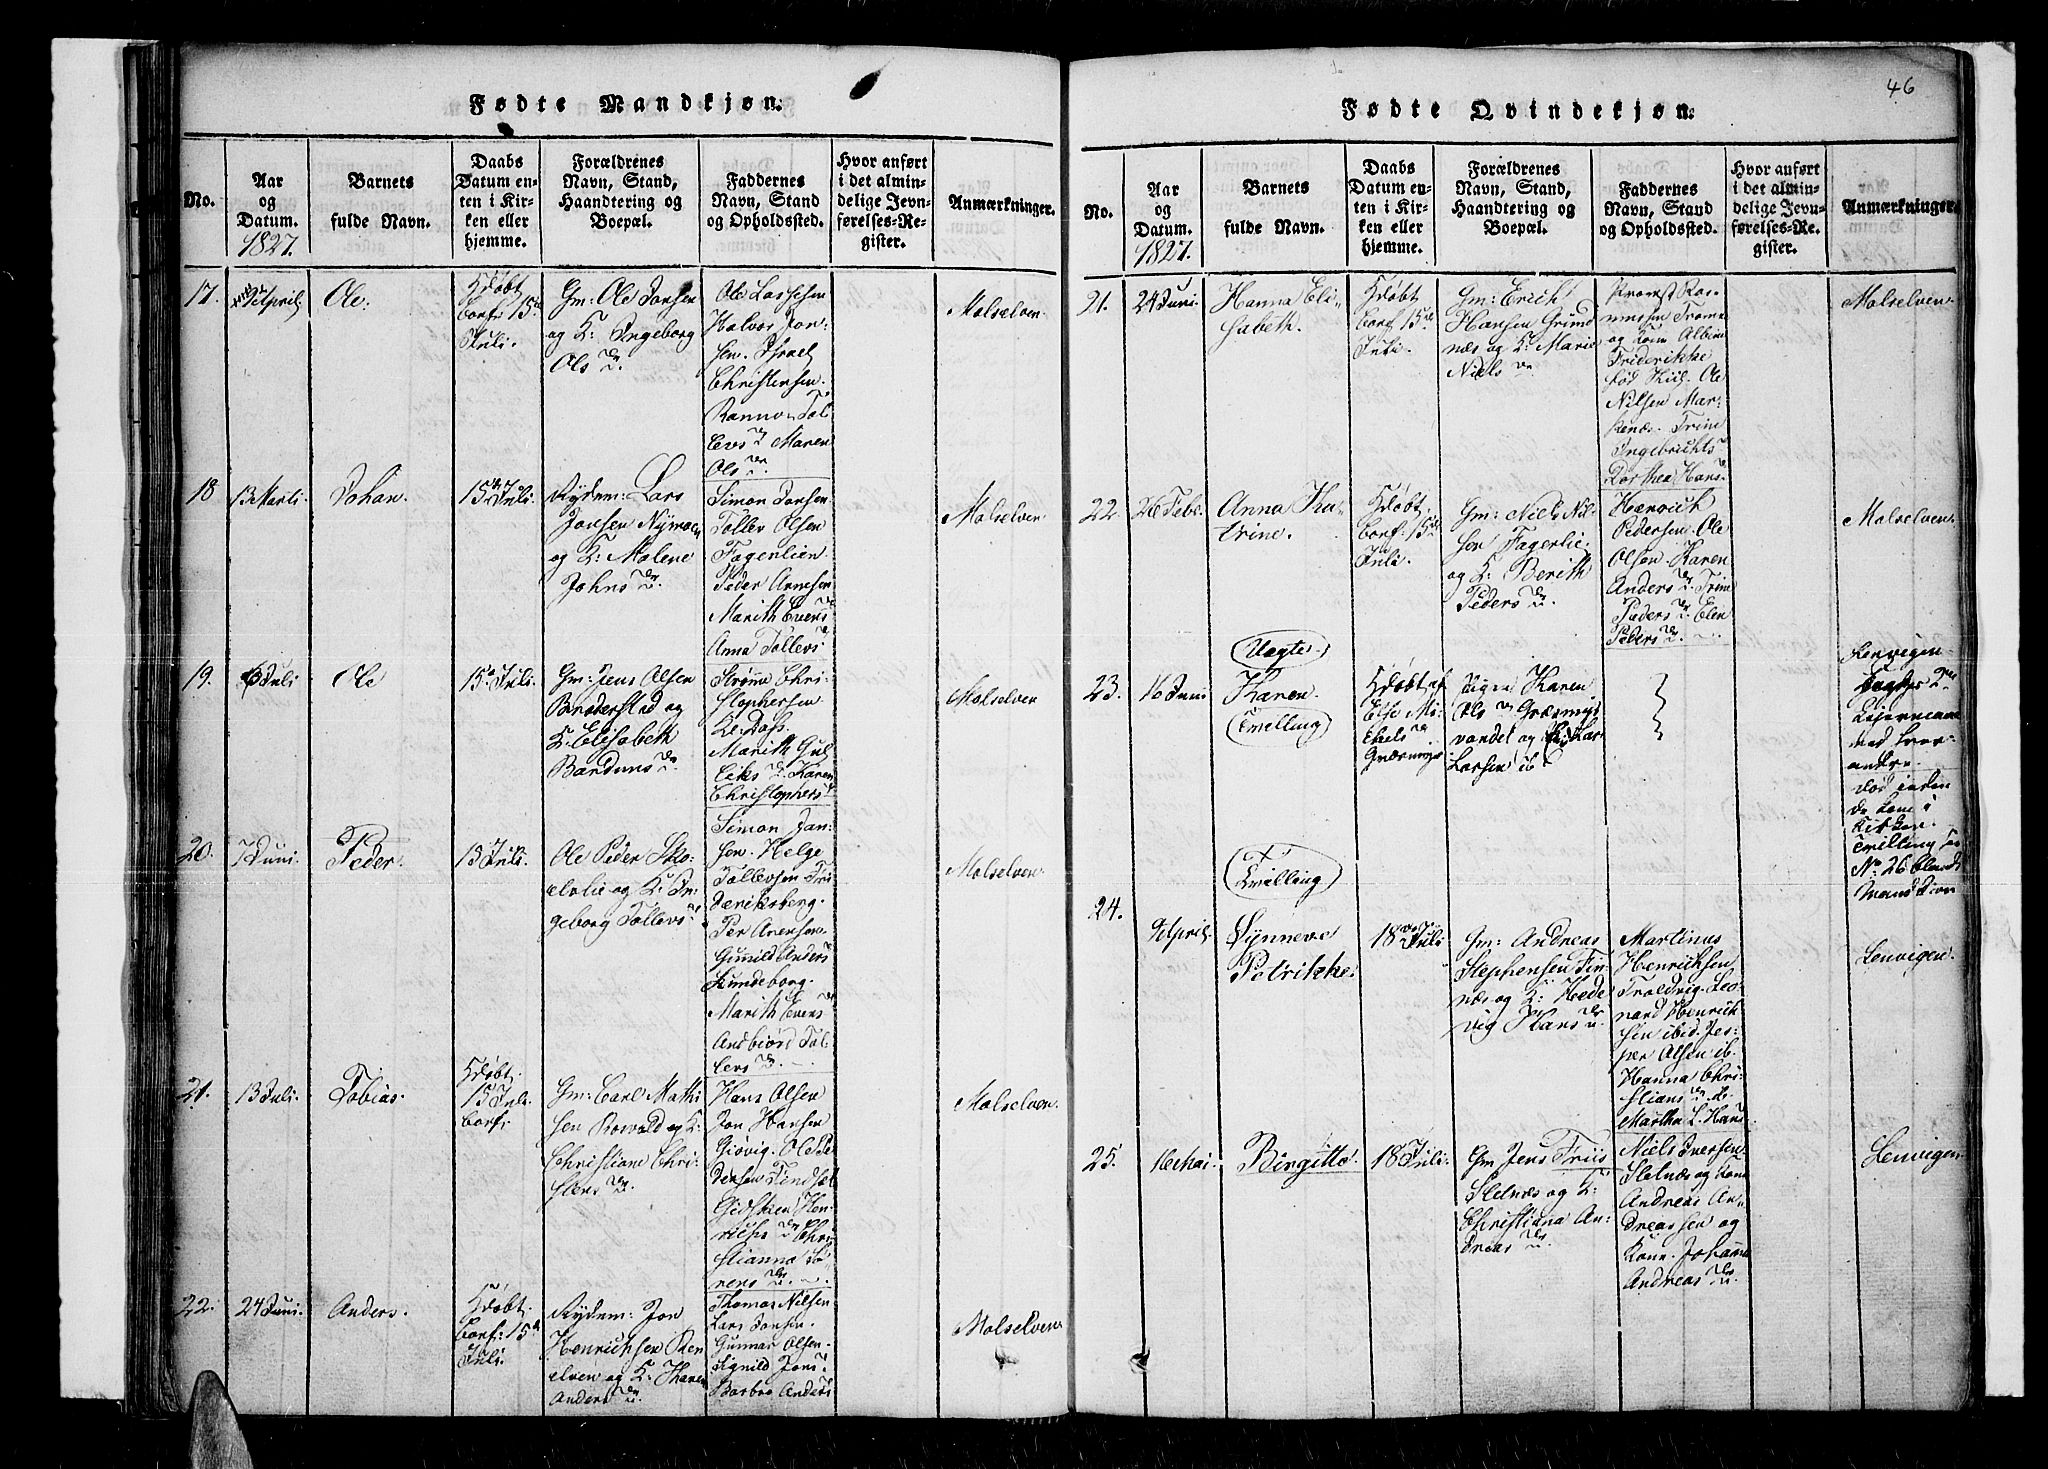 46
Fødte Mandkjøn.
No.
Aar
og
Datum.
1827.
Barnets
fulde Navn.
Daabs
Datum en-
ten i Kir-
ken eller
hjemme.
Forældrenes
Navn, Stand,
Haandtering og
Boepæl.
Faddernes
Navn, Stand
og Opholdssted.
Hvor anført
i det almin-
delige Jevn-
førelses-Re-
gister.
Anmærkninger.
17.
April
Ole.
Hdøbt
Conf: 15de
Juli.
Gm: Ole Jonsen
og K: Ingeborg
Ols Dr.
Ole Lassesen
Halvor Jon-
sen. Israel
Christensen.
Maren
Ols Dr.
Malselven
18
13 Marti.
Johan.
15de Juli.
Rydm: Lars
Jonsen Nymoen
og K: Malene
Johns Dr.
Simon Jonsen
Tollev Olsen
Fagerlien
Peder Arnesen
Marith Evens
Anna Tollevs
Malselven
19.
6 Juli
Ole
15de Juli.
Gm: Jens Olsen
og
K: Elisabeth
Bardons Dr.
Chri-
stophersen
Marith Gul-
Karen
Christophers
Malselven
20.
7 Juni
Peder.
15 Juli.
Ole Peder Sko-
elvlie og K: In-
geborg Tollevs
Simon Jan-
sen. Helge
Tollevsen Fri-
deriksberg.
Per Arensen
Gunild Anders
Lundeborg.
Marith Evens
Tol-
levs Dr.
Malselven.
21.
13 Juli.
Tobias.
Hdøbt.
15 Juli.
Conf.
Gm: Carl Mathi
sen Rovold og K:
Christiane Chri-
stens Dr.
Hans Olsen
Jon Hansen
Giøvig. Ole Pe-
dersen
Hen-
richs Dr. Chri-
stianna Sø-
rens Dr.
Malselven.
22.
24 Juni.
Anders.
Hdøbt.
Conf: 15de
Juli.
Rydm: Jon
Henrichsen
elven og K: Karen
Anders Dr.
Thomas Nilsen
Lars Jonsen.
Gunnar Olsen
Signild Jons.
Barbro Anders
Malselven
Fødte Qvindekjøn.
No.
Aar
og
Datum.
1827.
Barnets
fulde Navn.
Daabs
Datum en-
ten i Kir-
ken eller
hjemme.
Forældrenes
Navn, Stand,
Haandtering og
Boepæl.
Faddernes
Navn, Stand
og Opholdssted.
Hvor anført
i det almin-
delige Jevn-
førelses-Re-
gister.
Anmærkninger.
21.
24 Juni.
Hanna Eli-
sabeth.
Hdøbt
Conf: 15de
Juli.
Gm: Erich
Hansen Grund-
næs og K: Marie
Niels Dr.
Provst Ras-
mussen Tromsø
og Kone Albine
Friderikke
fød Kiil. Ole
Nilsen Mar-
kenæs. Trine
Ingebrichts
Dorthea Hans
Malselven
22.
26 Febr.
Anna Ka-
trine.
Hdøbt
Conf: 15de
Juli.
Gm: Niels Nil-
sen Fagerlie
og K: Berith
Peders Dr.
Henrich
Pedersen. Ole
Olsen. Karen
Anders Dr. Trine
Peders Dr. Elen
Peders Dr.
Malselven.
23.
16 Juni
Uægte.
Karen.
Tvilling.
Hdøbt af
Else Mi-
chels Dr.
Pigen Karen
Ols Dr. Græsmyr
vandet og
Larsen ib.
Lenvigen
med hver-
andre.
død inden
de kom i
Kirken.
Tvilling see
No 26 blandt
Mandkiøn
24.
April.
Tvilling
Synneve
Petrikke.
18de Juli
Gm: Andreas
Stephensen Fin-
næs og K: Hede-
vig Hans Dr.
Martinus
Henrichsen
Troldvig. Leo-
nard Henrick-
sen ibid. Jes-
per Olsen ib.
Hanna Chri-
stians Dr. ib.
Martha L. Hans
Lenvigen.
25.
16 Mai.
Birgitte.
18 Juli.
Gm Jens Friis
Sletnæs og K:
Christiana An-
dreas Dr.
Niels Iversen
Sletnæs og Kone
Andreas An-
dreassen og
Kone. Johanna
Andreas Dr.
Lenvigen